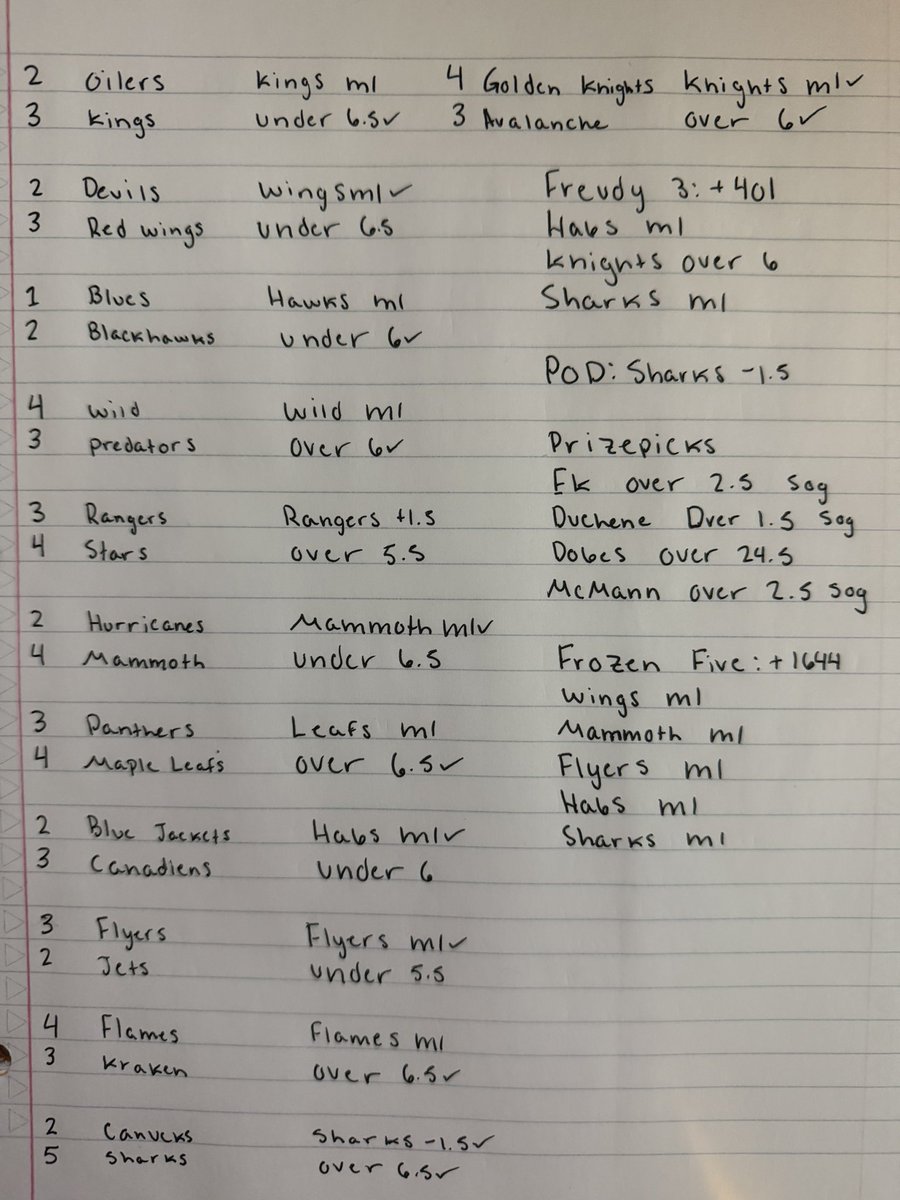 2 Oilers Kings ml
3 Kings under 6.5✓
4 Golden Knights Knights ml✓
3 Avalanche over 6✓
2 Devils Wings ml✓
3 Red wings under 6.5
1 Blues Hawks ml
2 Blackhawks under 6✓
4 Wild Wild ml
3 Predators over 6✓
3 Rangers Rangers +1.5
4 Stars over 5.5
2 Hurricanes Mammoth ml✓
4 Mammoth under 6.5
3 Panthers Leafs ml
4 Maple Leafs over 6.5✓
2 Blue Jackets Habs ml✓
3 Canadiens under 6
3 Flyers Flyers ml✓
2 Jets under 5.5
4 Flames Flames ml
3 Kraken over 6.5✓
2 Canucks Sharks -1.5✓
5 Sharks over 6.5✓
Freudy 3: +401
Habs ml
Knights over 6
Sharks ml
POD: Sharks -1.5
Prizepicks
Ek over 2.5 sog
Duchene Over 1.5 sog
Dobes over 24.5
McMann over 2.5 sog
Frozen Five: +1644
Wings ml
Mammoth ml
Flyers ml
Habs ml
Sharks ml